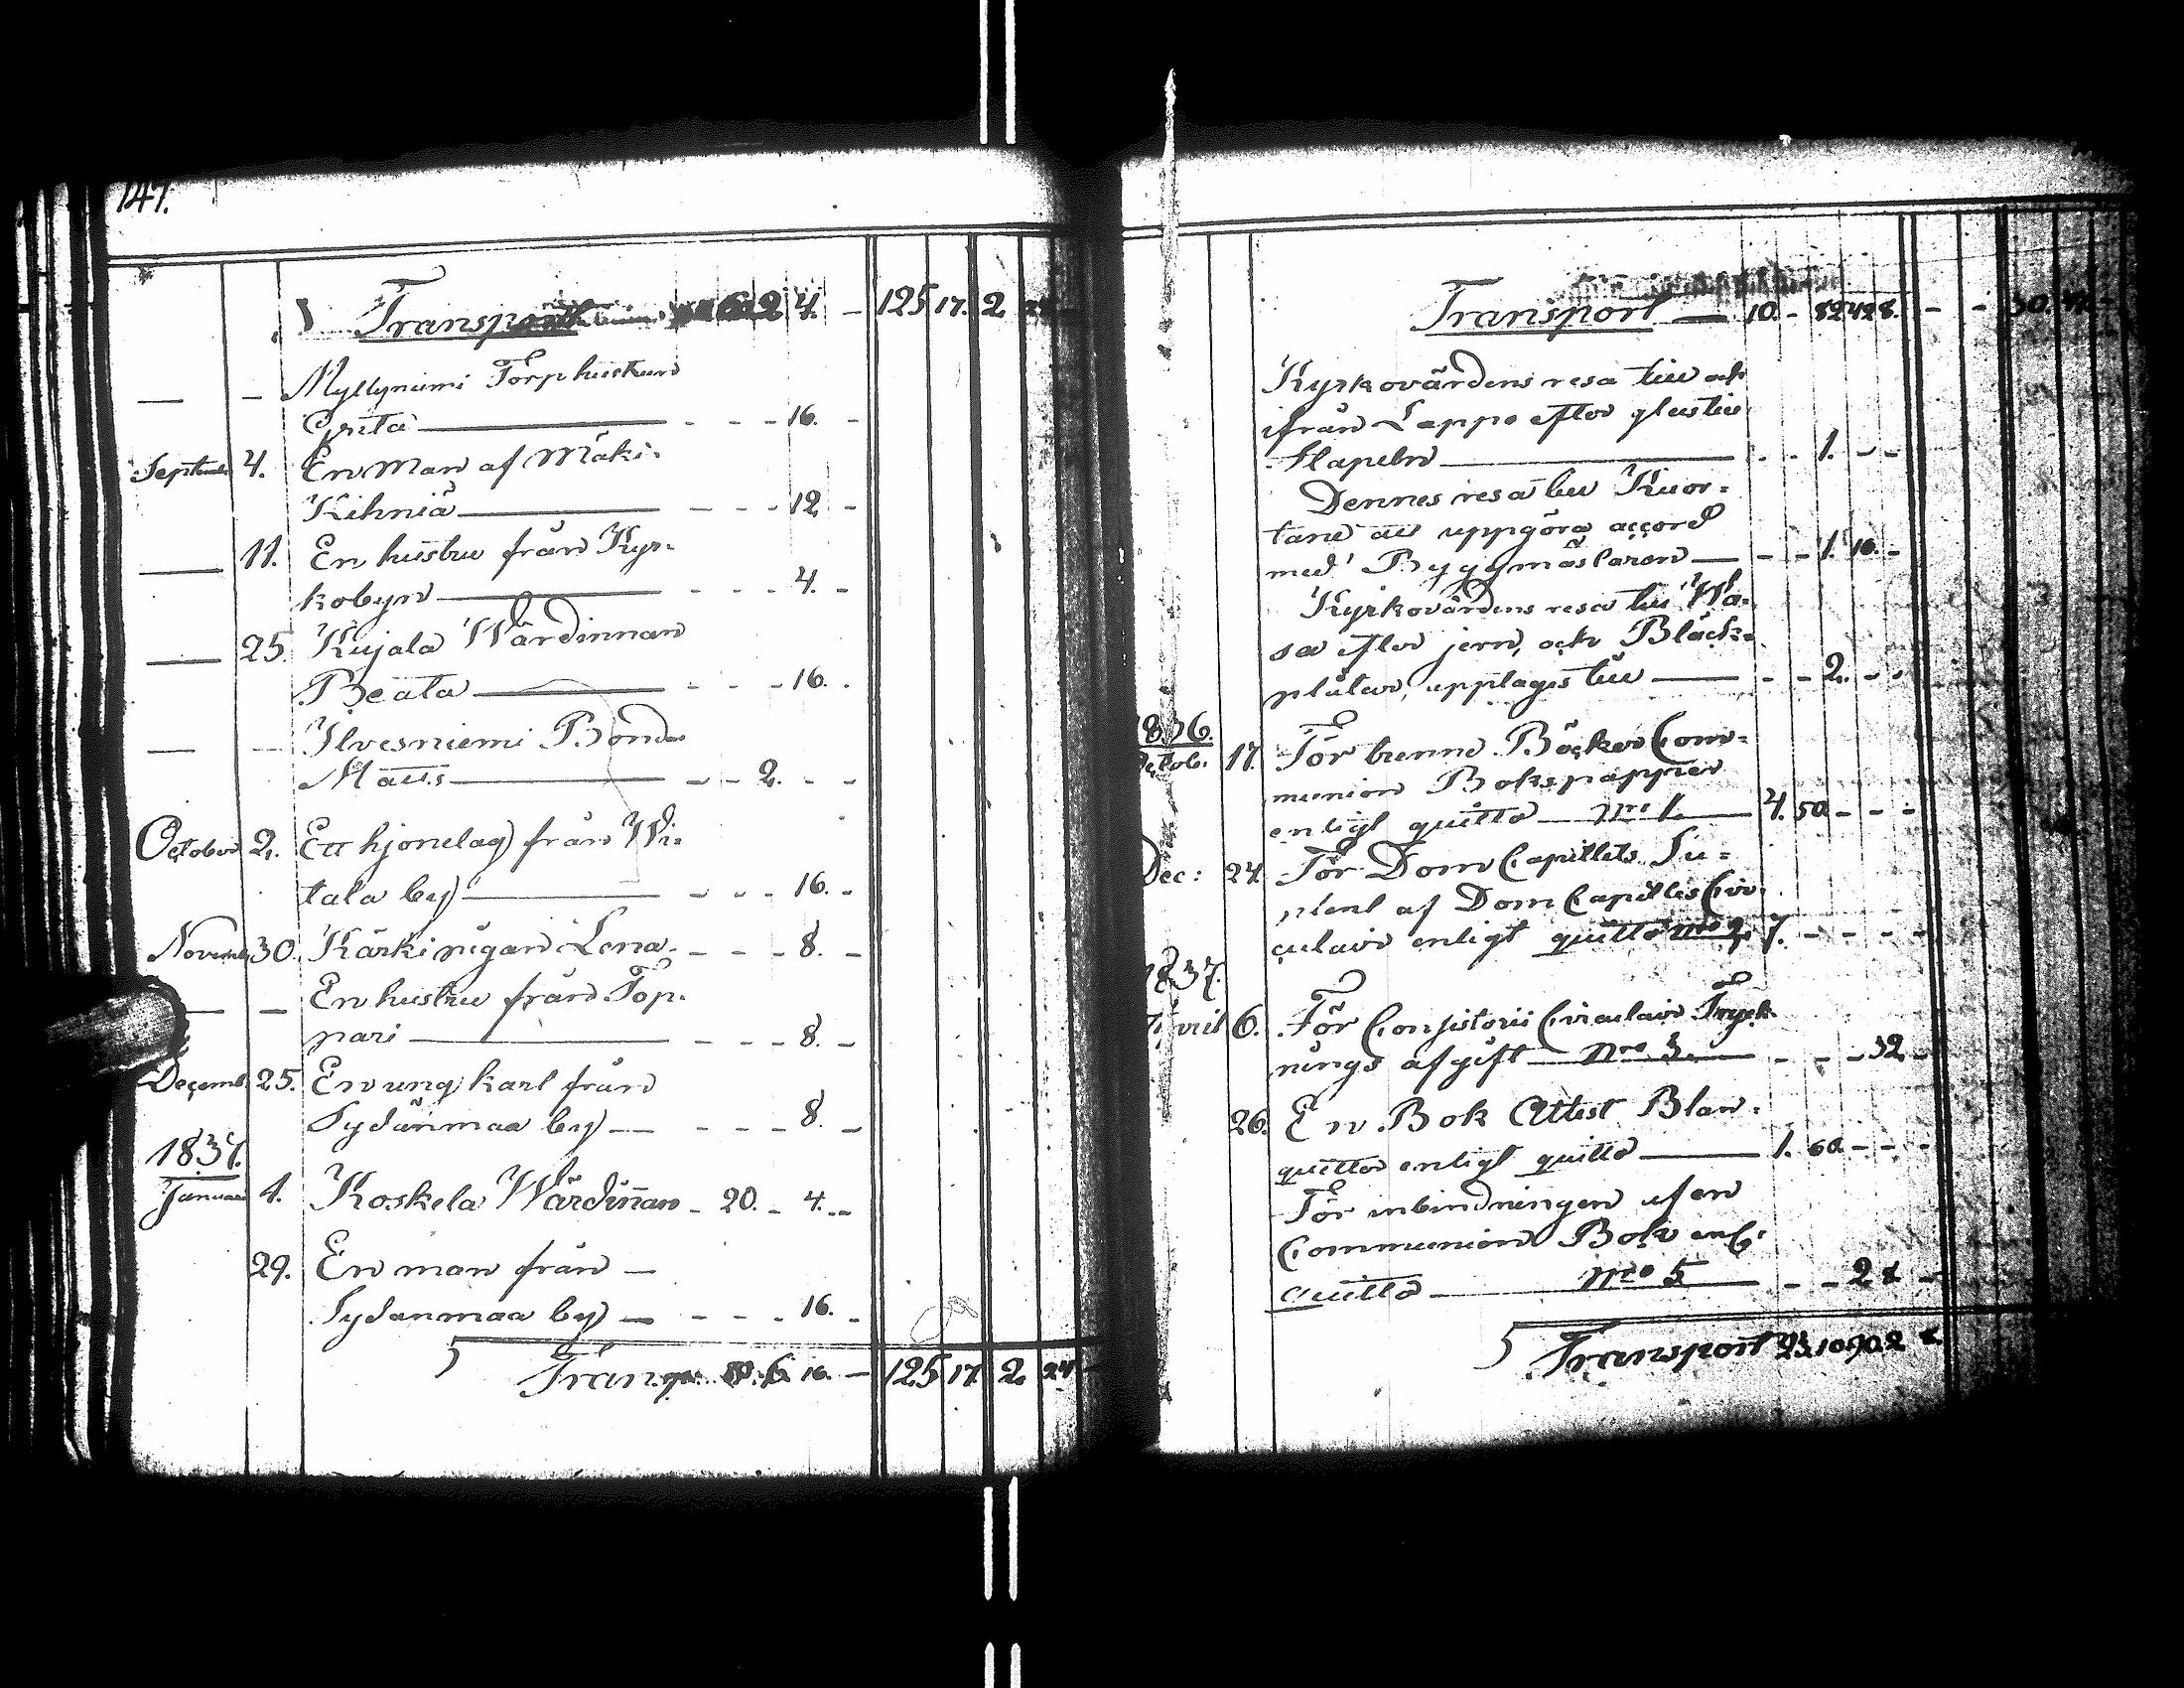 147.
Transport 62 4. – 125 17. 2. 24
— – Myllyniemi Torphustrun
Greta — – – – 16. –
Septemb 4. En Man af Mäki-
Kihniä — – – – 12 –
— 11. En hustru från Kyr-
kobyn — – – – 4. –
— 25. Kujala Wärdinnan
Beata — – – – 16. –
— — Ilvesniemi Bonde
Matts — – – 2. – –
October 2. Ett hjonelag från Wi-
tala by — – – – 16. –
Novemb 30. Kärki pigan Lena – – – 8. –
— — En hustru från Töp-
pari — – – – 8. –
Decemb 25. En ung karl från
Sydänmaa by — – – – 8. –
1837.
Januari 1. Koskela Wärdinnan – 20. – 4. –
29. En man från —
Sydanmaa by — – – – 16. –
Transp. 6 16. – 125 17 2 24
Transport — 10. – 82 4 28. – – 30.
Kyrkovärdens resa till och
ifrån Lappo efter glas till
Stapeln — – – 1. – –
Dennes resa till Kuor-
tane att uppgöra accord
med Byggmästaren — – – 1. 16. –
Kyrkovärdens resa till Wa-
sa efter jern, och Bläck-
plåtar, upptages till — – – 2. – –
1836.
Octob. 17. För tunna Böcker Com-
munion Bokspapper
enligt quitto — Nro 1. — 4. 50 – – –
Dec: 24. För Dom Capitlets Su-
plent af Dom Capitles Cir-
culair enligt quitto Nro 2. 7. – – – –
1837.
April 6. För Consistorii Circulair Tryck-
nings afgift — Nro 3. — – – – 32 –
26. En Bok Attest Blan-
quetter enligt quitto — 1. 60 – – –
För inbindningen af en
Communion Bok enl.
quitto — Nro 5 — – – 2
Transport 23 10 90 2